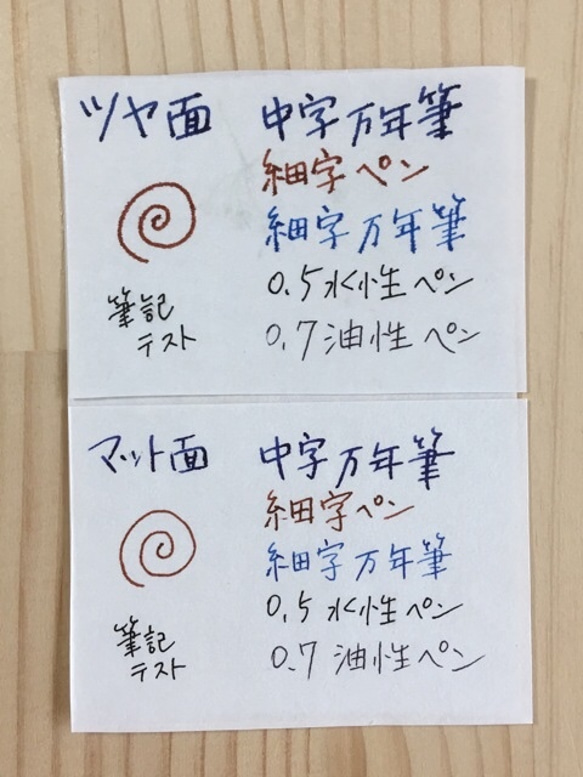 ツヤ面
中字万年筆
細字ペン
細字万年筆
0.5水性ペン
0.7油性ペン
筆記
テスト
マット面
中字万年筆
細字ペン
細字万年筆
0.5水性ペン
0.7油性ペン
筆記
テスト